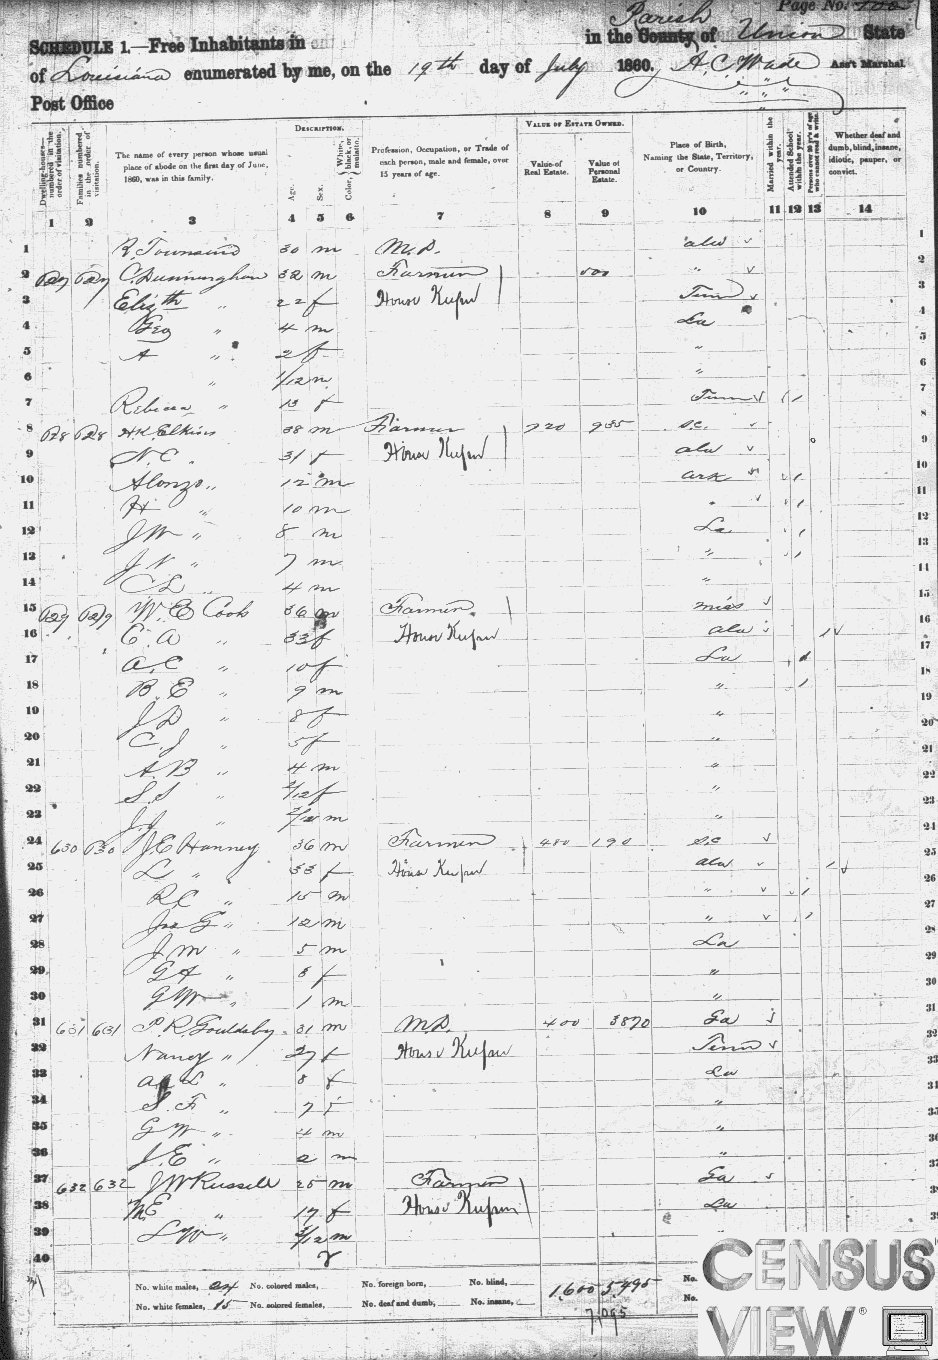 Page No.
SCHEDULE 1.—Free Inhabitants in in the County of Parish Union State
of Louisiana enumerated by me, on the 19th day of July 1860. A. C. Wade Ass't Marshal.
Post Office
Dwelling-houses— numbered in the order of visitation.
Families numbered in the order of visitation.
The name of every person whose usual place of abode on the first day of June, 1860, was in this family.
DESCRIPTION.
Age. Sex. Color, White, black, or mulatto.
Profession, Occupation, or Trade of each person, male and female, over 15 years of age.
VALUE OF ESTATE OWNED.
Value of Real Estate. Value of Personal Estate.
Place of Birth, Naming the State, Territory, or Country.
Married within the year.
Attended School within the year.
Persons over 20 y'rs of age who cannot read & write.
Whether deaf and dumb, blind, insane, idiotic, pauper, or convict.
1 2 3 4 5 6 7 8 9 10 11 12 13 14
1 R. Townsend 30 m M.D. ala 1
2 627 627 C. Dunningham 32 m Farmer " 2
3 Elizth " 22 f House Keeper Tenn 3
4 Geo " 4 m La 4
5 A " 2 f " 5
6 " 1/12 m " 6
7 Rebecca " 13 f Tenn 7
8 628 628 H K Elkins 38 m Farmer 720 935 S.C. 8
9 N. C. 31 f House Keeper ala 9
10 Alonzo " 12 m ark 10
11 H " 10 m " 11
12 J W " 8 m La 12
13 J N " 7 m " 13
14 C L " 4 m " 14
15 629 629 W. E Cook 36 m Farmer miss 15
16 C A " 33 f House Keeper ala 16
17 A. C " 10 f La 17
18 B. E " 9 m " 18
19 J D " 8 f " 19
20 C. J " 5 f " 20
21 A. B " 4 m " 21
22 S. S " /12 f " 22
23 J. J. " /12 m " 23
24 630 630 J. E Hanney 36 m Farmer 480 190 S.C 24
25 L " 33 f House Keeper ala 25
26 R. C " 15 m " 26
27 Jas G " 12 m " 27
28 J. M " 5 m La 28
29 G A " 3 f " 29
30 G W " 1 m " 30
31 631 631 P. R. Gouldsby 31 m M.D. 400 3870 Ga
32 Nancy " 27 f House Keeper Tenn 32
33 L " 8 f La 33
34 S. F " 7 f " 34
35 G W " 4 m " 35
36 J. E " 2 m " 36
37 632 632 J W Russell 25 m Farmer Ga 37
38 M. E " 17 f House Keeper La 38
39 " /12 m
40
No. white males, 24 No. colored males, No. foreign born, No. blind, 1,600 5,495 No.
No. white females, 15 No. colored females, No. deaf and dumb, No. insane, No.
7,095
CENSUS
VIEW®